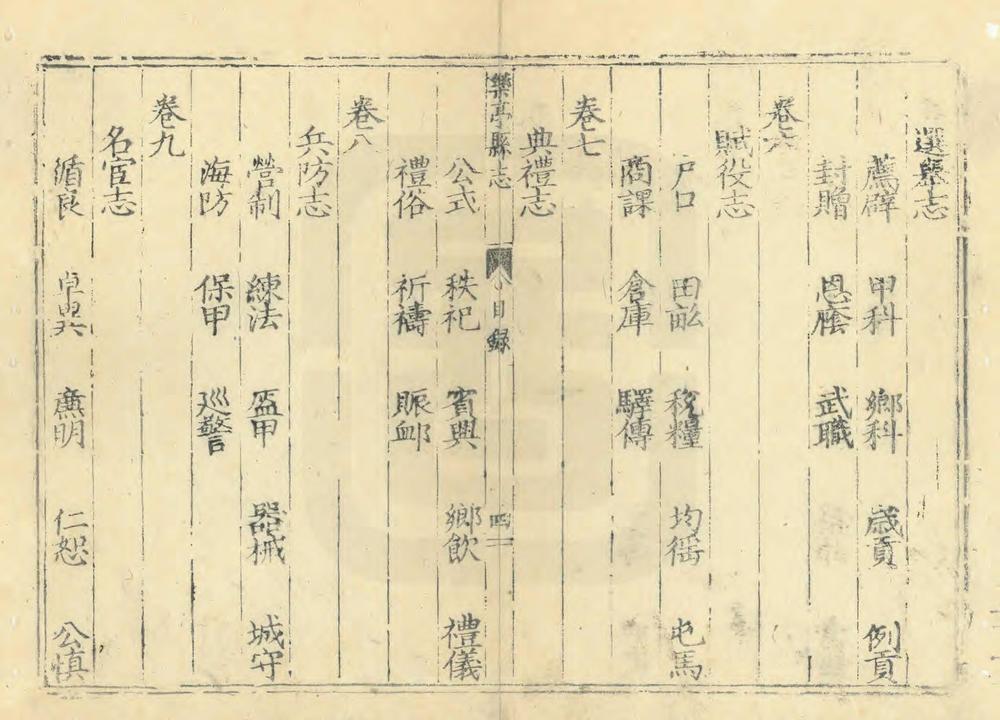 選舉志
薦辟 甲科 鄉科 歲貢 例貢
封贈 恩廕 武職
卷六
賦役志
戶口 田畝 稅糧 均徭 屯馬
商課 倉庫 驛傳
卷七
典禮志
樂亭縣志 目錄 四
公式 秩祀 賓興 鄉飲 禮儀
禮俗 祈禱 賑卹
卷八
兵防志
營制 練法 盔甲 器械 城守
海防 保甲 廵警
卷九
名宦志
循良 卓異 廉明 仁恕 公慎